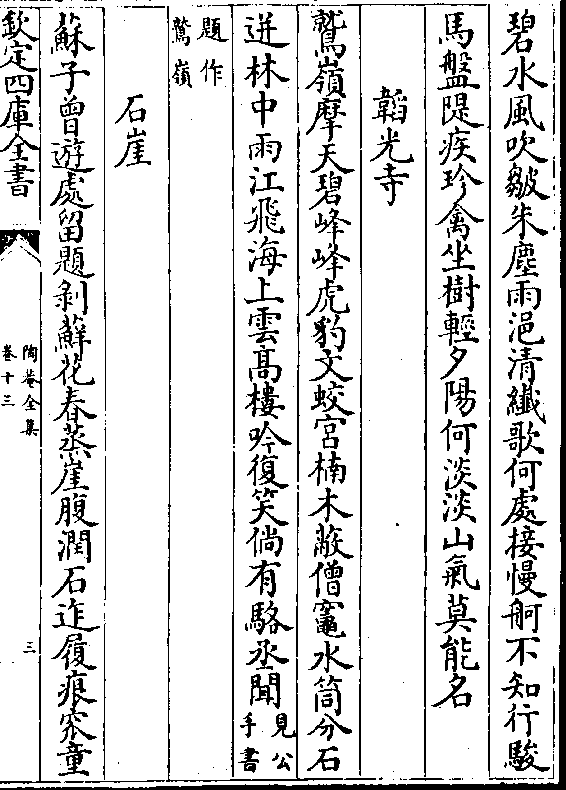 碧水風吹皺朱塵雨浥清纎歌何處接慢舸不知行駿
馬盤隄疾珍禽坐樹輕夕陽何淡淡山氣莫能名
韜光寺
鷲嶺摩天碧峰峰虎豹文蛟宫楠木蔽僧竈水筒分石
迸林中雨江飛海上雲髙樓吟復笑倘有駱丞聞見公手書
題作鷲嶺
石崖
蘇子曾遊處留題剥蘚花春蒸崖腹潤石迮履痕窊童
欽定四庫全書
陶菴全集
卷十三
三